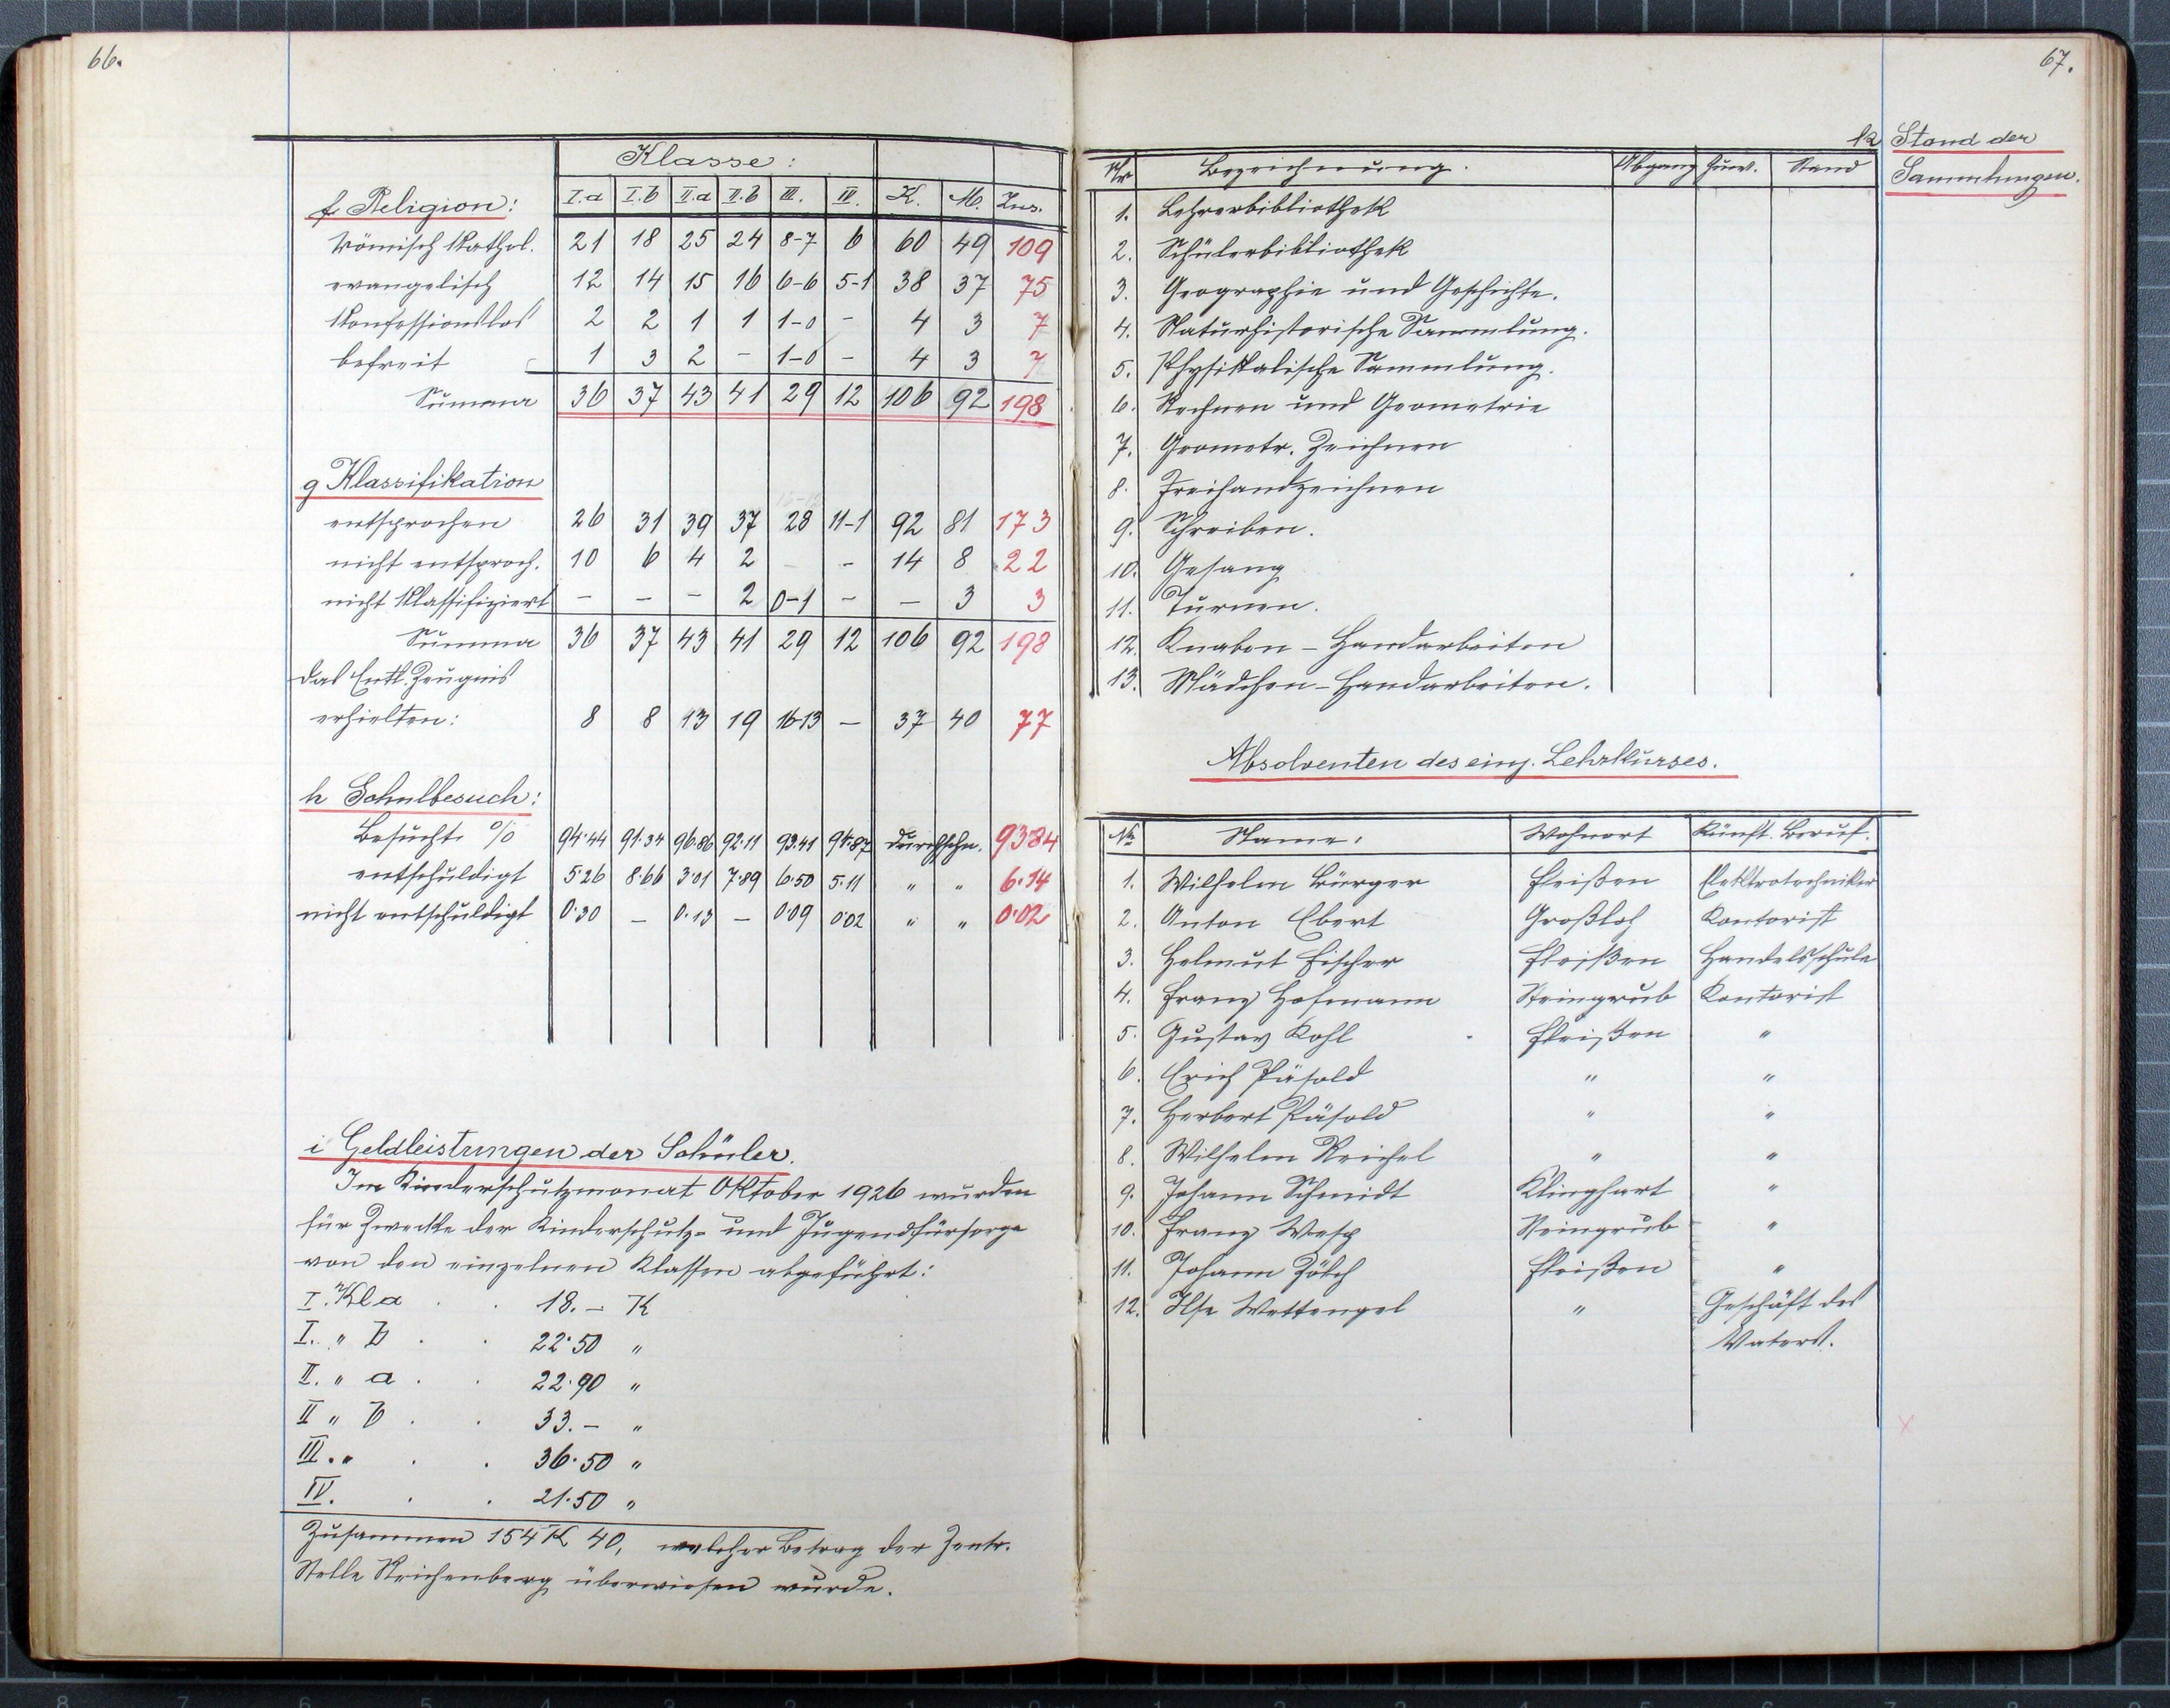 66.
Klasse:
I.a I.b II.a II.b III. IV. K. M. Zus.
f Religion:
römisch kathol. 21 18 25 24 8-7 6 60 49 109
evangelisch 12 14 15 16 6-6 5-1 38 37 75
konfessionslos 2 2 1 1 1-0 - 4 3 7
befreit 1 3 2 - 1-0 - 4 3 7
Summa 36 37 43 41 29 12 106 92 198
g Klassifikation
entsprochen 26 31 39 37 28 11-1 92 81 173
nicht entsproch. 10 6 4 2 - 14 8 22
nicht klassifiziert - - - 2 0-1 - - 3 3
Summa 36 37 43 41 29 12 106 92 198
das Entl. Zeugnis
erhielten: 8 8 13 19 16-13 - 37 40 77
h Schulbesuch:
Besucht % 94.44 91.34 96.86 92.11 93.41 94.87 durchschn. 93.84
entschuldigt 5.26 8.66 3.01 7.89 6.50 5.11 " " 6.14
nicht entschuldigt 0.30 - 0.13 - 0.09 0.02 " " 0.02
i Geldleistungen der Schüler.
Im Kinderschutzmonat Oktober 1926 wurden
für Zwecke der Kinderschutz- und Jugendfürsorge
von den einzelnen Klassen abgeführt:
I. Kl a . . 18.- K
I. " b . . 22.50 "
II. " a . . 22.90 "
II " b . . 33.- "
III. " . . 36.50 "
IV. . . 21.50 "
Zusammen 154 K 40, welcher Betrag der Zentr.
Stelle Reichenberg überwiesen wurde.
67.
k Stand der
Sammlungen.
Nr Bezeichnung. Abgang Zuw. Stand
1. Lehrerbibliothek
2. Schülerbibliothek
3. Geographie und Geschichte.
4. Naturhistorische Sammlung.
5. Physikalische Sammlung.
6. Rechnen und Geometrie
7. Geometr. Zeichnen
8. Freihandzeichnen
9. Schreiben.
10. Gesang
11. Turnen.
12. Knaben-Handarbeiten
13. Mädchen-Handarbeiten.
Absolventen des einj. Lehrkurses.
No Name: Wohnort Künft. Beruf.
1. Wilhelm Bürger Fleißen Elektrotechniker
2. Anton Ebert Großloh Kontorist
3. Helmut Fischer Fleißen Handelsschule
4. Franz Hofmann Steingrub Kontorist
5. Gustav Kohl Fleißen "
6. Erich Päsold " "
7. Herbert Päsold " "
8. Wilhelm Reichel " "
9. Johann Schmidt Klinghart "
10. Franz Wesp Steingrub "
11. Johann Zölch Fleißen "
12. Ilse Wettengel " Geschäft des
Vaters.